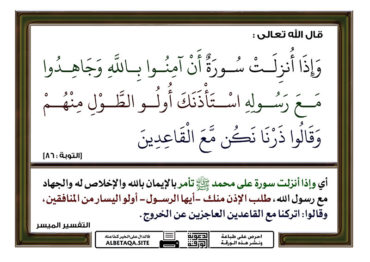 قال الله تعالى :
وَإِذَا أُنزِلَتْ سُورَةٌ أَنْ آمِنُوا بِاللَّهِ وَجَاهِدُوا
مَعَ رَسُولِهِ اسْتَأْذَنَكَ أُولُو الطَّوْلِ مِنْهُمْ
وَقَالُوا ذَرْنَا نَكُن مَّعَ الْقَاعِدِينَ
[التوبة : ٨٦]
أي وإذا أنزلت سورة على محمد ﷺ تأمر بالإيمان بالله والإخلاص له والجهاد
مع رسول الله، طلب الإذن منك -أيها الرسول- أولو اليسار من المنافقين،
وقالوا: اتركنا مع القاعدين العاجزين عن الخروج.
التفسير الميسر
احرص على طباعة
ونشر هذه الورقة
فالدال على الخير كفاعله
ALBETAQA.SITE